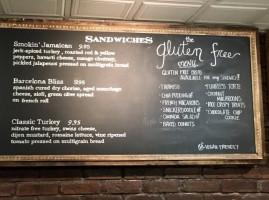 SANDWICHES
Smokin' Jamaican 9.95
jerk-spiced turkey, roasted red & yellow
peppers, havarti cheese, mango chutney,
pickled jalapenos pressed on multigrain bread
Barcelona Bliss 9.95
spanish cured dry chorizo, aged manchego
cheese, aioli, green olive spread
on french roll
Classic Turkey 9.95
nitrate free turkey, swiss cheese,
dijon mustard, romaine lettuce, vine ripened
tomato pressed on multigrain bread
the
gluten free
menu
GLUTEN FREE BREAD
AVAILABLE FOR any SANDWICH!
- TIRAMISU
- CHIA PUDDING
- FRENCH MACARONS
- SNICKERDOODLE
- QUINOA SALAD
- BAKED DONUTS
- FLOURLESS TORTE
- COCONUT
MACAROONS
- RICE CRISPY TREATS
- CHOCOLATE CHIP
COOKIE
VEGAN FRIENDLY